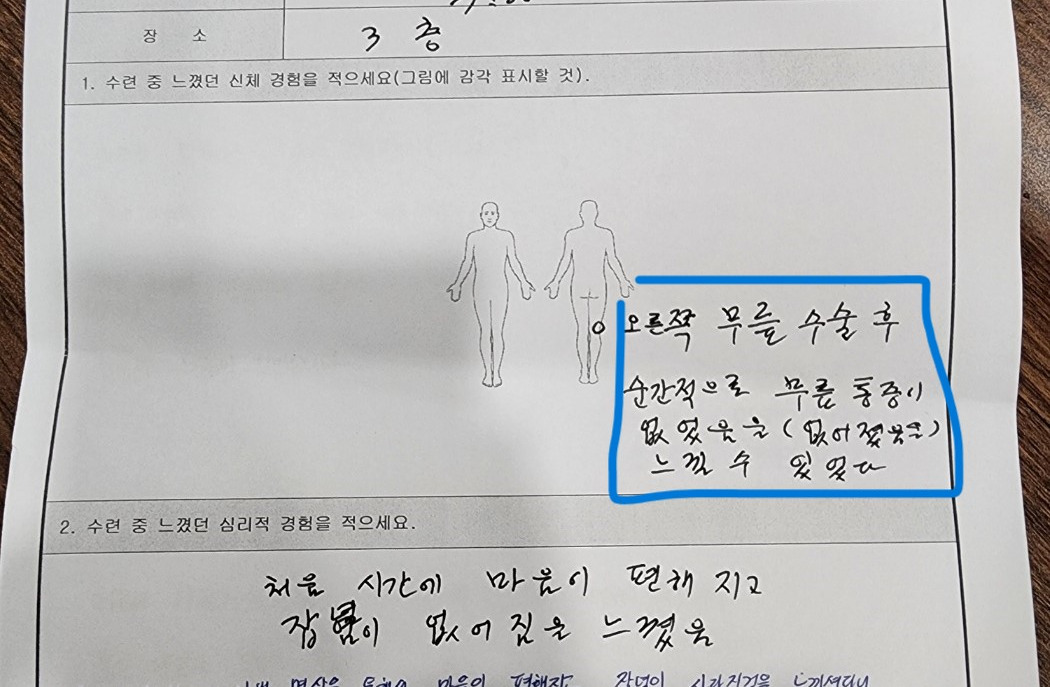 장 소
3 층
1. 수련 중 느꼈던 신체 경험을 적으세요(그림에 감각 표시할 것).
오른쪽 무릎 수술 후
순간적으로 무릎 통증이
없었음을 (없어졌음을)
느낄 수 있었다
2. 수련 중 느꼈던 심리적 경험을 적으세요.
처음 시간에 마음이 편해 지고
잡념이 없어 짐을 느꼈음